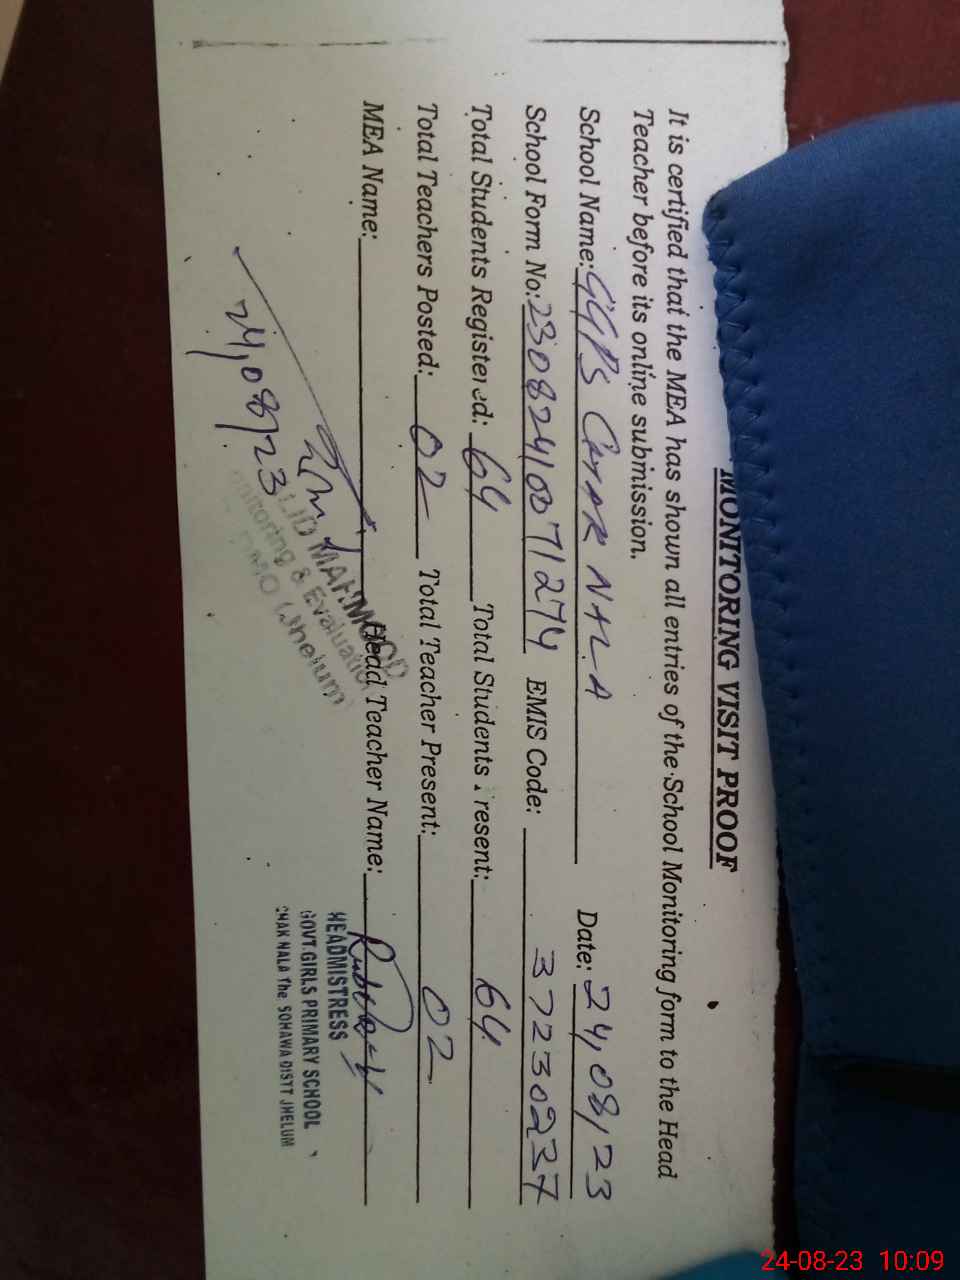 MONITORING VISIT PROOF
It is certified that the MEA has shown all entries of the School Monitoring form to the Head
Teacher before its online submission.
School Name: GGPS NALA Date: 24,08,23
School Form No: 23082410071274 EMIS Code: 37230237
Total Students Registered: 64 Total Students Present: 64
Total Teachers Posted: 02 Total Teacher Present: 02
MEA Name: Head Teacher Name:
24,08,23
LID MAHMOOD
onitoring & Evaluatio
EMO Jhelum
HEADMISTRESS
GOVT.GIRLS PRIMARY SCHOOL
CHAK NALA The SOHAWA DISTT JHELUM
24-08-23 10:09